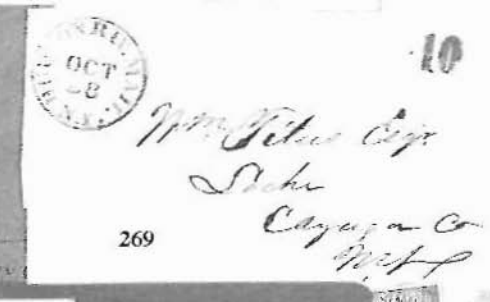 OCT
10
Wm Titus Esqr
Locke
Cayuga Co
N.Y.
269